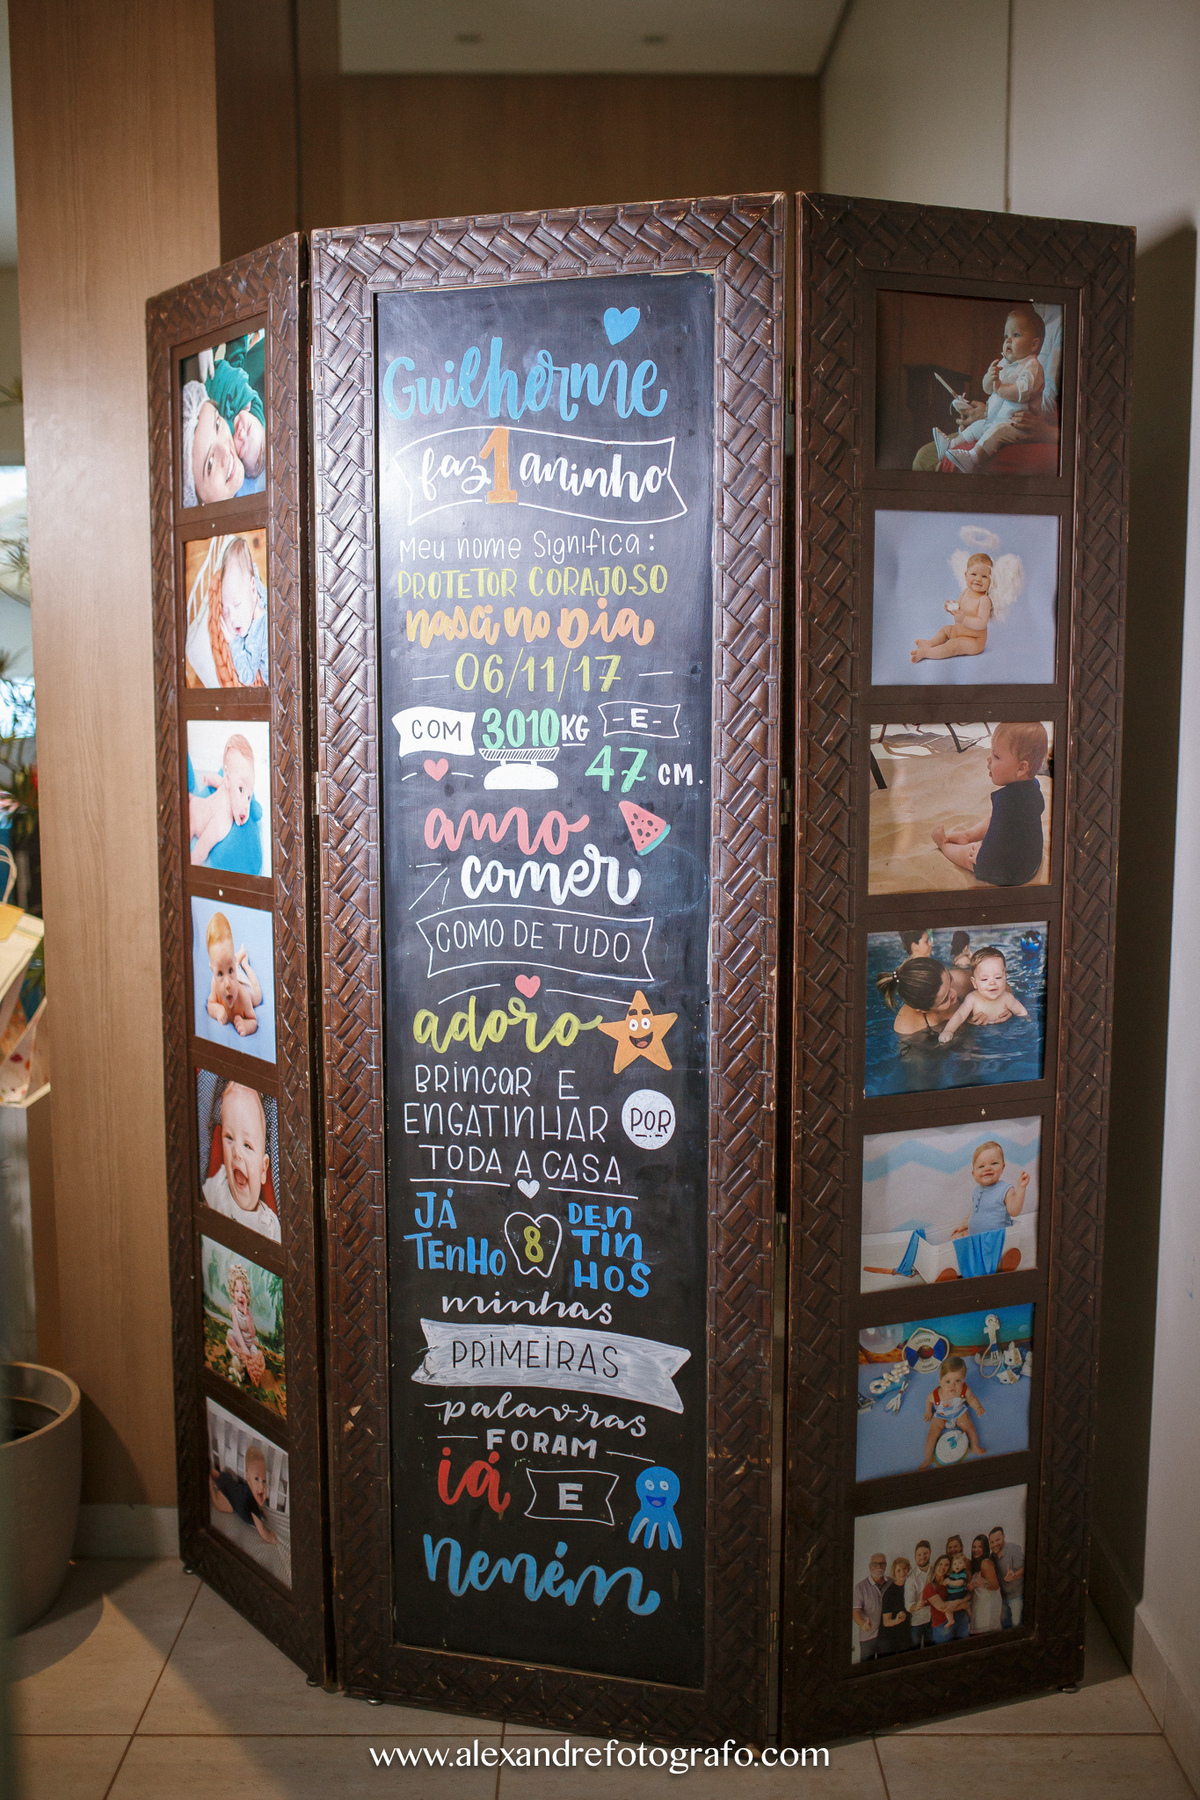 Guilherme
faz 1 aninho
Meu nome Significa:
PROTETOR CORAJOSO
nasci no Dia
06/11/17
COM 3.010 KG -E-
47 CM.
amo
comer
COMO DE TUDO
adoro
BRINCAR E
ENGATINHAR POR
TODA A CASA
JÁ TENHO 8 DEN
TIN
HOS
minhas
PRIMEIRAS
palavras
FORAM
iá E
neném
www.alexandrefotografo.com